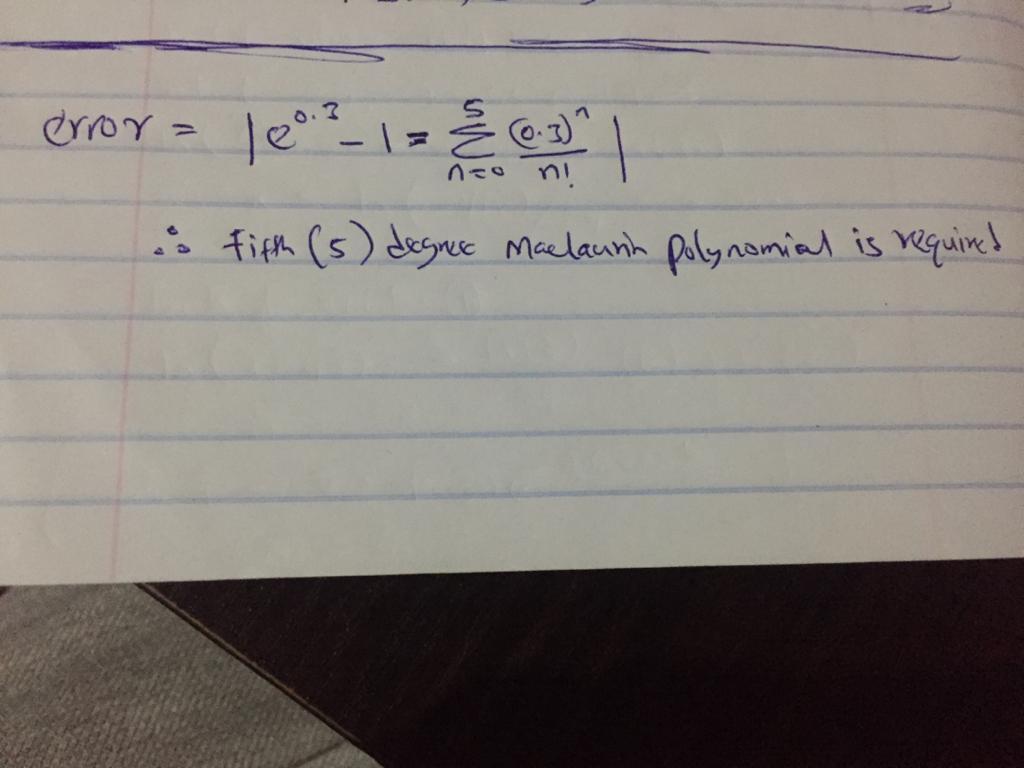 error = |e^0.3 - 1 = 5∑n=0 (0.3)^n/n!|
∴ fifth (5) degree Maclaurin polynomial is required